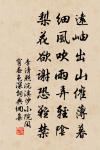 遠岫出山催薄暮
細風吹雨弄輕陰
梨花欲謝恐難禁
李清照浣溪沙小院閑
窗春色深詞典網集